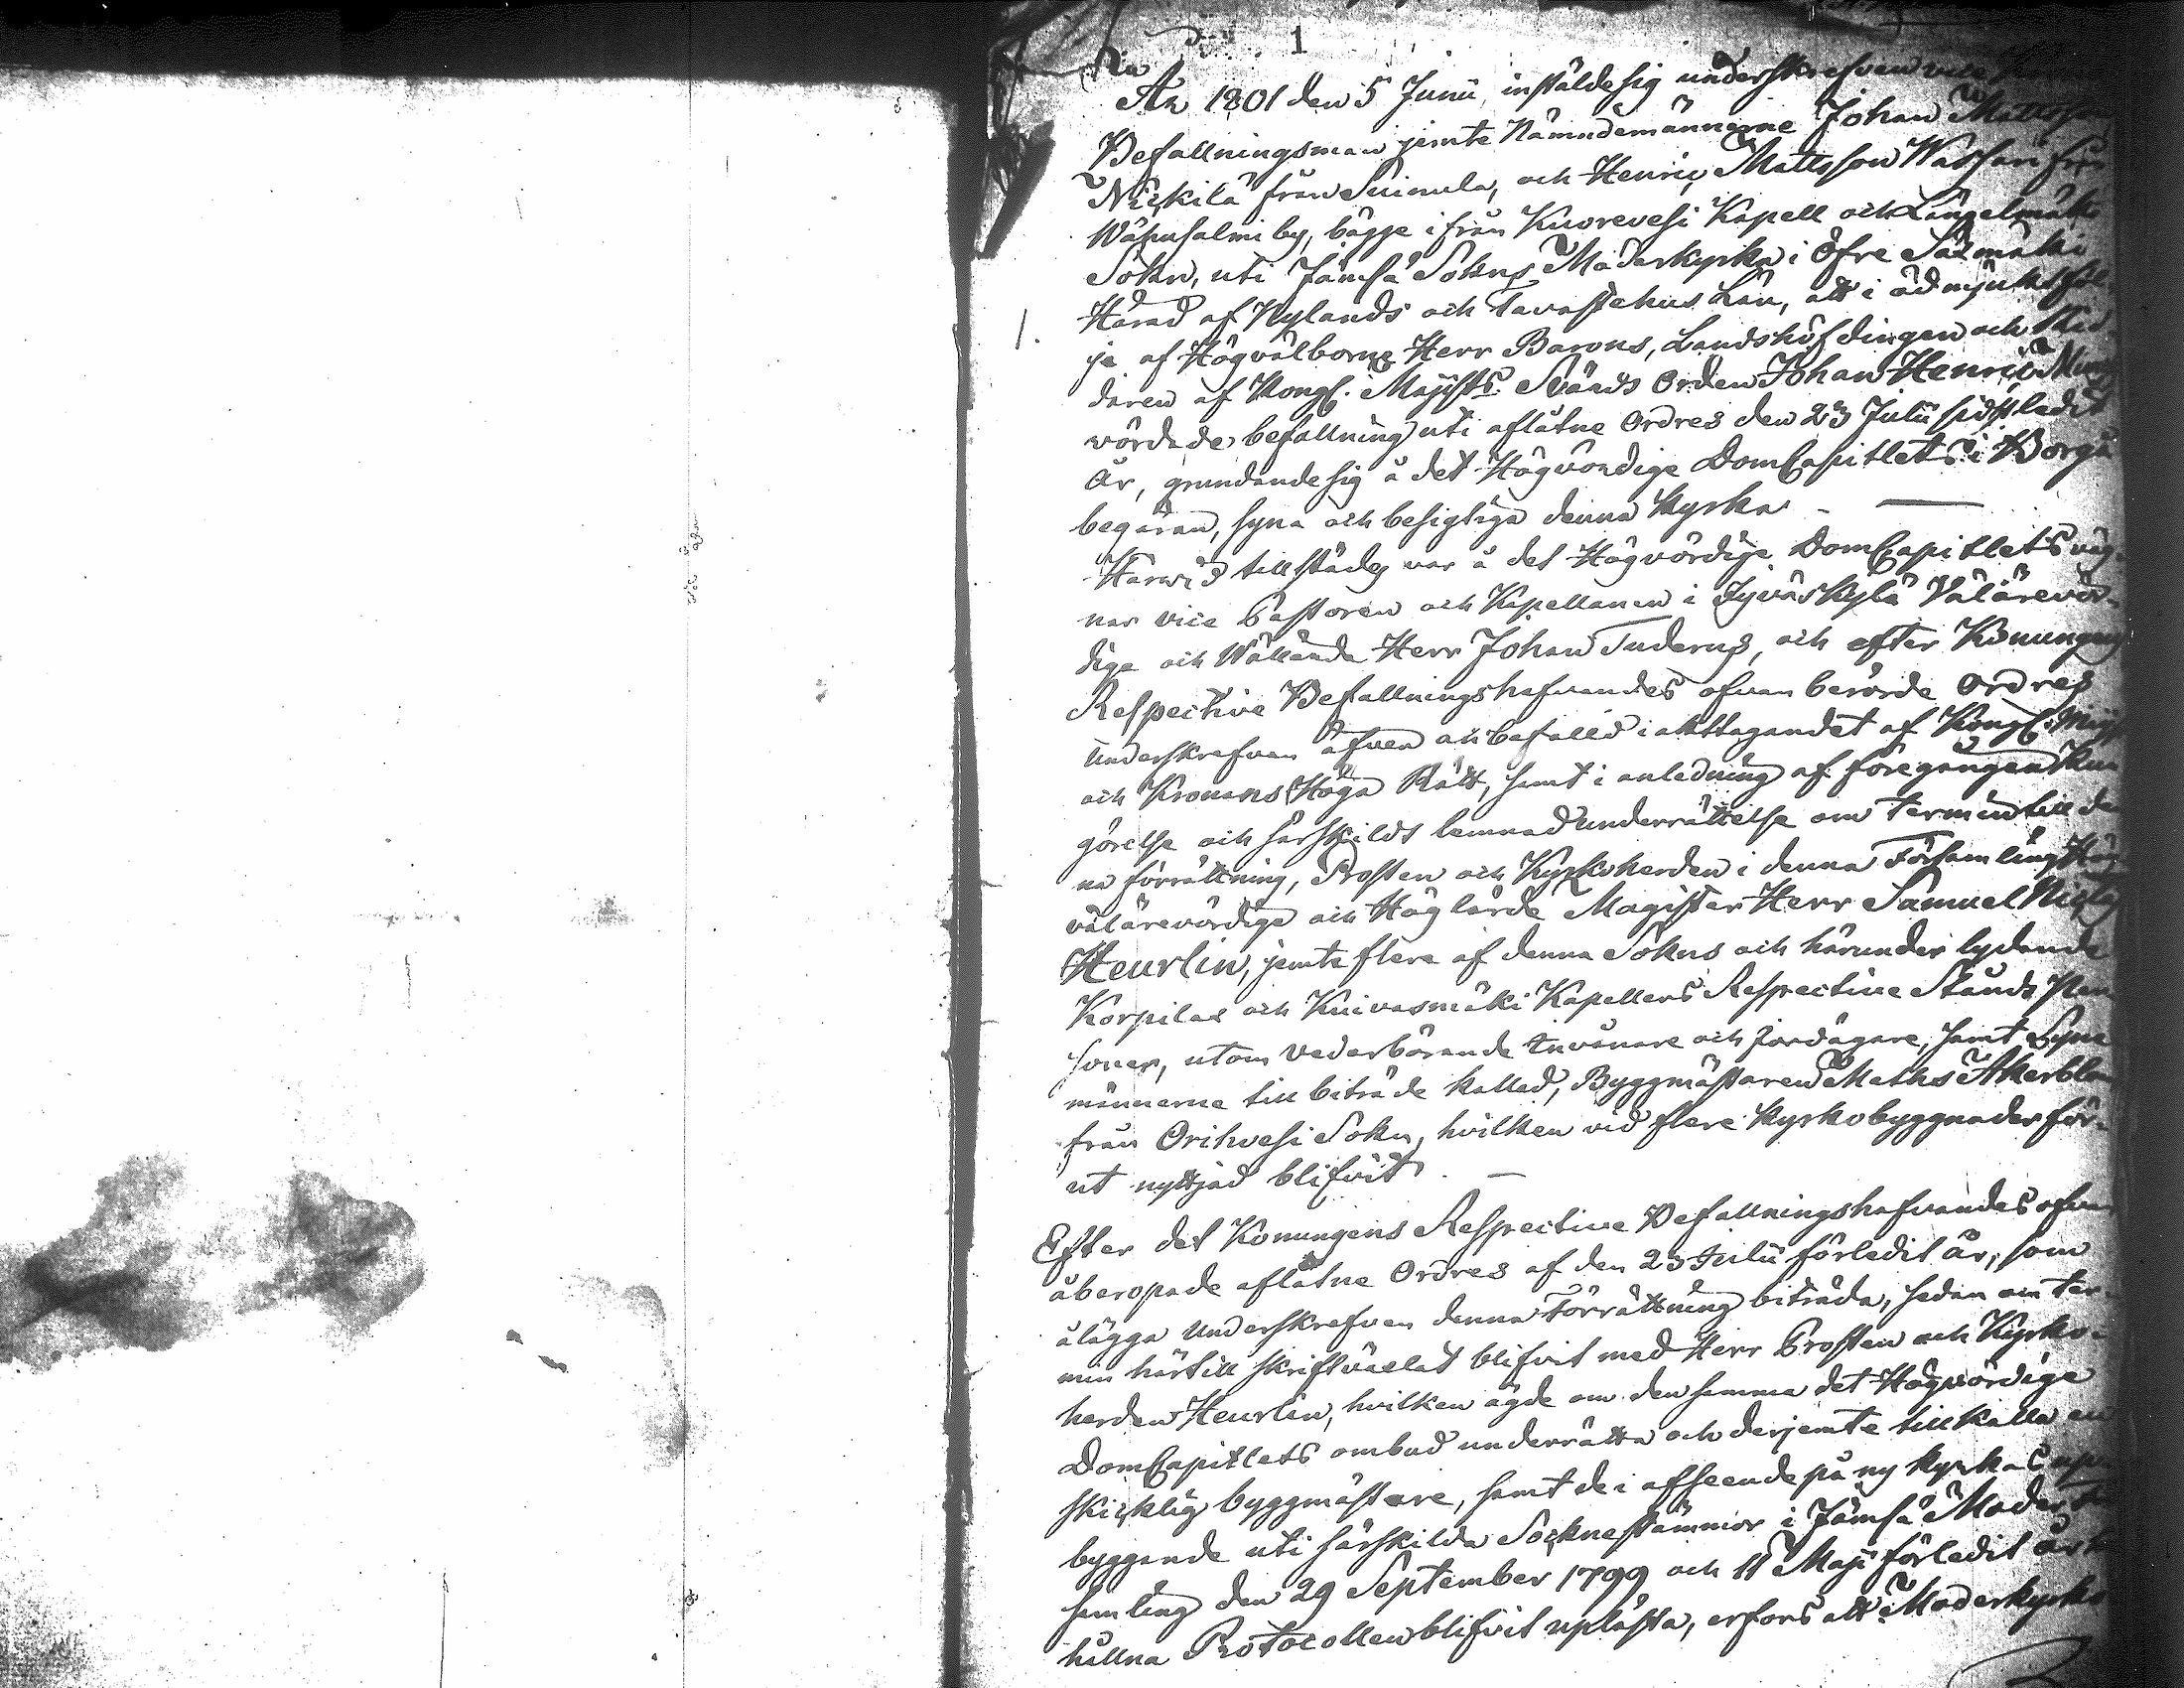 1
År 1801 den 5 Junii, instälde sig underskrefven vice
Befallningsman jemte Nämndemännerne Johan Mattsson
Nickilä från Suinula, och Henric Mattsson Wassari från
Wähusalmi by, bägge ifrån Kuorevesi Kapell och Längelmäki
Sokn, uti Jämsä Sokns Moderkyrka i Öfre Säxmäki
Härad af Nylands och Tavastehus Län, att i ödmjuk föl-
1.
je af Högvälborne Herr Barons, Landshöfdingen och Rid-
daren af Kongl. Majsts Svärds Orden Johan Henric Munck
vördade befallning uti aflåtne Ordres den 23 Julii sidstledit
År, grundande sig å det Högvördige DomCapitlets i Borgå
begäran, syna och besigtiga denna Kyrka. —
Härvid tillstädes var å det Högvördige DomCapitlets väg-
nar vice Pastoren och Kapellanen i Jyväskylä Välärevör-
dige och Wällärde Herr Johan Tuderus, och efter Konungens
Respective Befallningshafvandes ofvan berörde Ordres
Underskrefven äfven anbefalld iakttagandet af Kongl. Majsts
och Kronans Höga Rätt, samt i anledning af föregången Kun-
görelse och särskildt lemnad underrättelse om termin till den-
na förrättning, Prosten och Kyrkoherden i denna Församling Hög-
välärevördige och Höglärde Magister Herr Samuel Niclas
Heurlin, jemte flere af denna Sokns och härunder lydande
Korpilax och Kuivasmäki Kapellers Respective Stånds Per-
soner, utom vederbörande Invånare och Jordägare, samt Syne-
männerne till biträde kallad, Byggmästaren Maths Åkerblom
från Orihvesi Sokn, hvilken vid flere Kyrkobyggnader för-
ut nyttjad blifvit. —
Efter det Konungens Respective Befallningshafvandes ofvan
åberopade aflåtne Ordres af den 23 Julii förledit år, som
ålägga Underskrefven denna Förrättning biträda, sedan om ter-
min härtill skriftväxlat blifvit med Herr Prosten och Kyrko-
herden Heurlin, hvilken ägde om densamma det Högvördige
DomCapitlets ombud underrätta och derjemte tillkalla en
skicklig byggmästare, samt de i afseende på ny kyrkas upp-
byggande uti särskilda Socknestämmor i Jämsä Moder
samling den 29 September 1799 och 11 Maji förledit år
hållna Protocollen blifvit uplästa, erfors att Moderkyrko